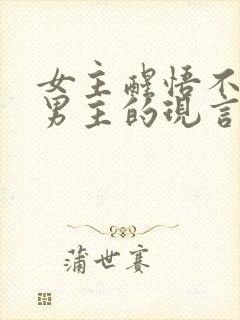 女主醒悟不
男主的现言
蒲世赛